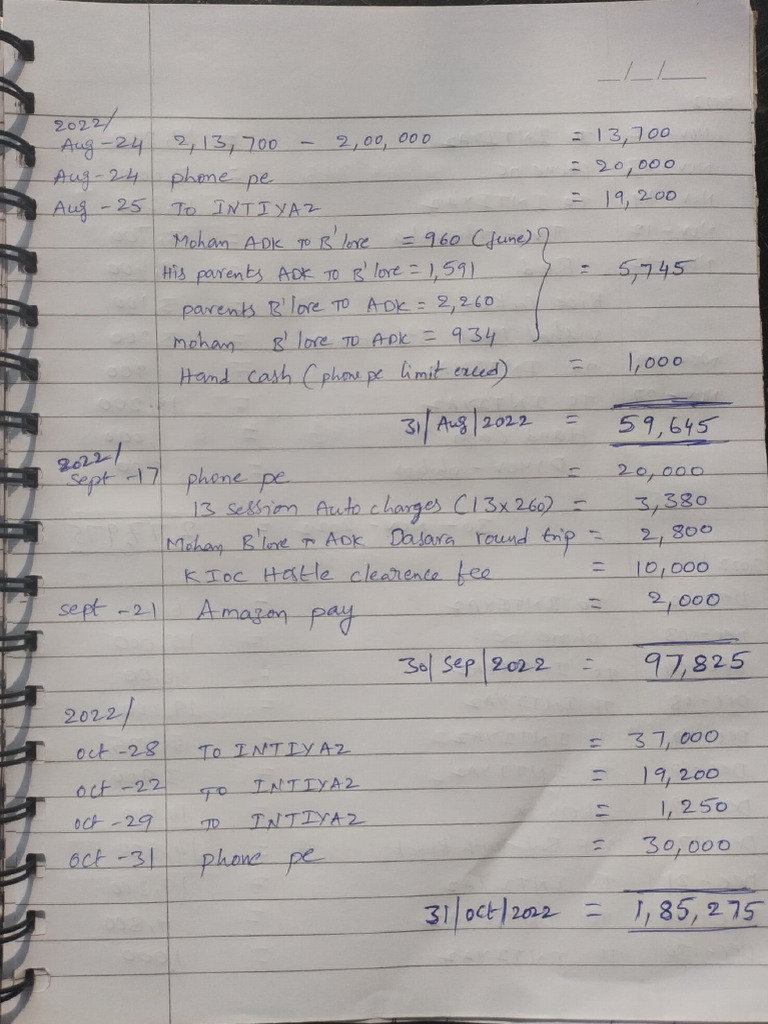 _/_/__
2022/
Aug-24 2,13,700 - 2,00,000 = 13,700
Aug-24 phone pe = 20,000
Aug-25 To INTIYAZ = 19,200
Mohan ADK to B'lore = 960 (June)
His parents ADK to B'lore = 1,591 = 5,745
parents B'lore To ADK = 2,260
Mohan B'lore TO ADK = 934
Hand cash (phone pe limit exceed) = 1,000
31/Aug/2022 = 59,645
2022/
Sept-17 phone pe = 20,000
13 session Auto charges (13x260) = 3,380
Mohan B'lore to ADK Dasara round trip = 2,800
KIOC Hostle clearence fee = 10,000
sept-21 Amazon pay = 2,000
30/Sep/2022 = 97,825
2022/
oct-28 To INTIYAZ = 37,000
oct-22 TO INTIYAZ = 19,200
oct-29 TO INTIYAZ = 1,250
oct-31 phone pe = 30,000
31/oct/2022 = 1,85,275